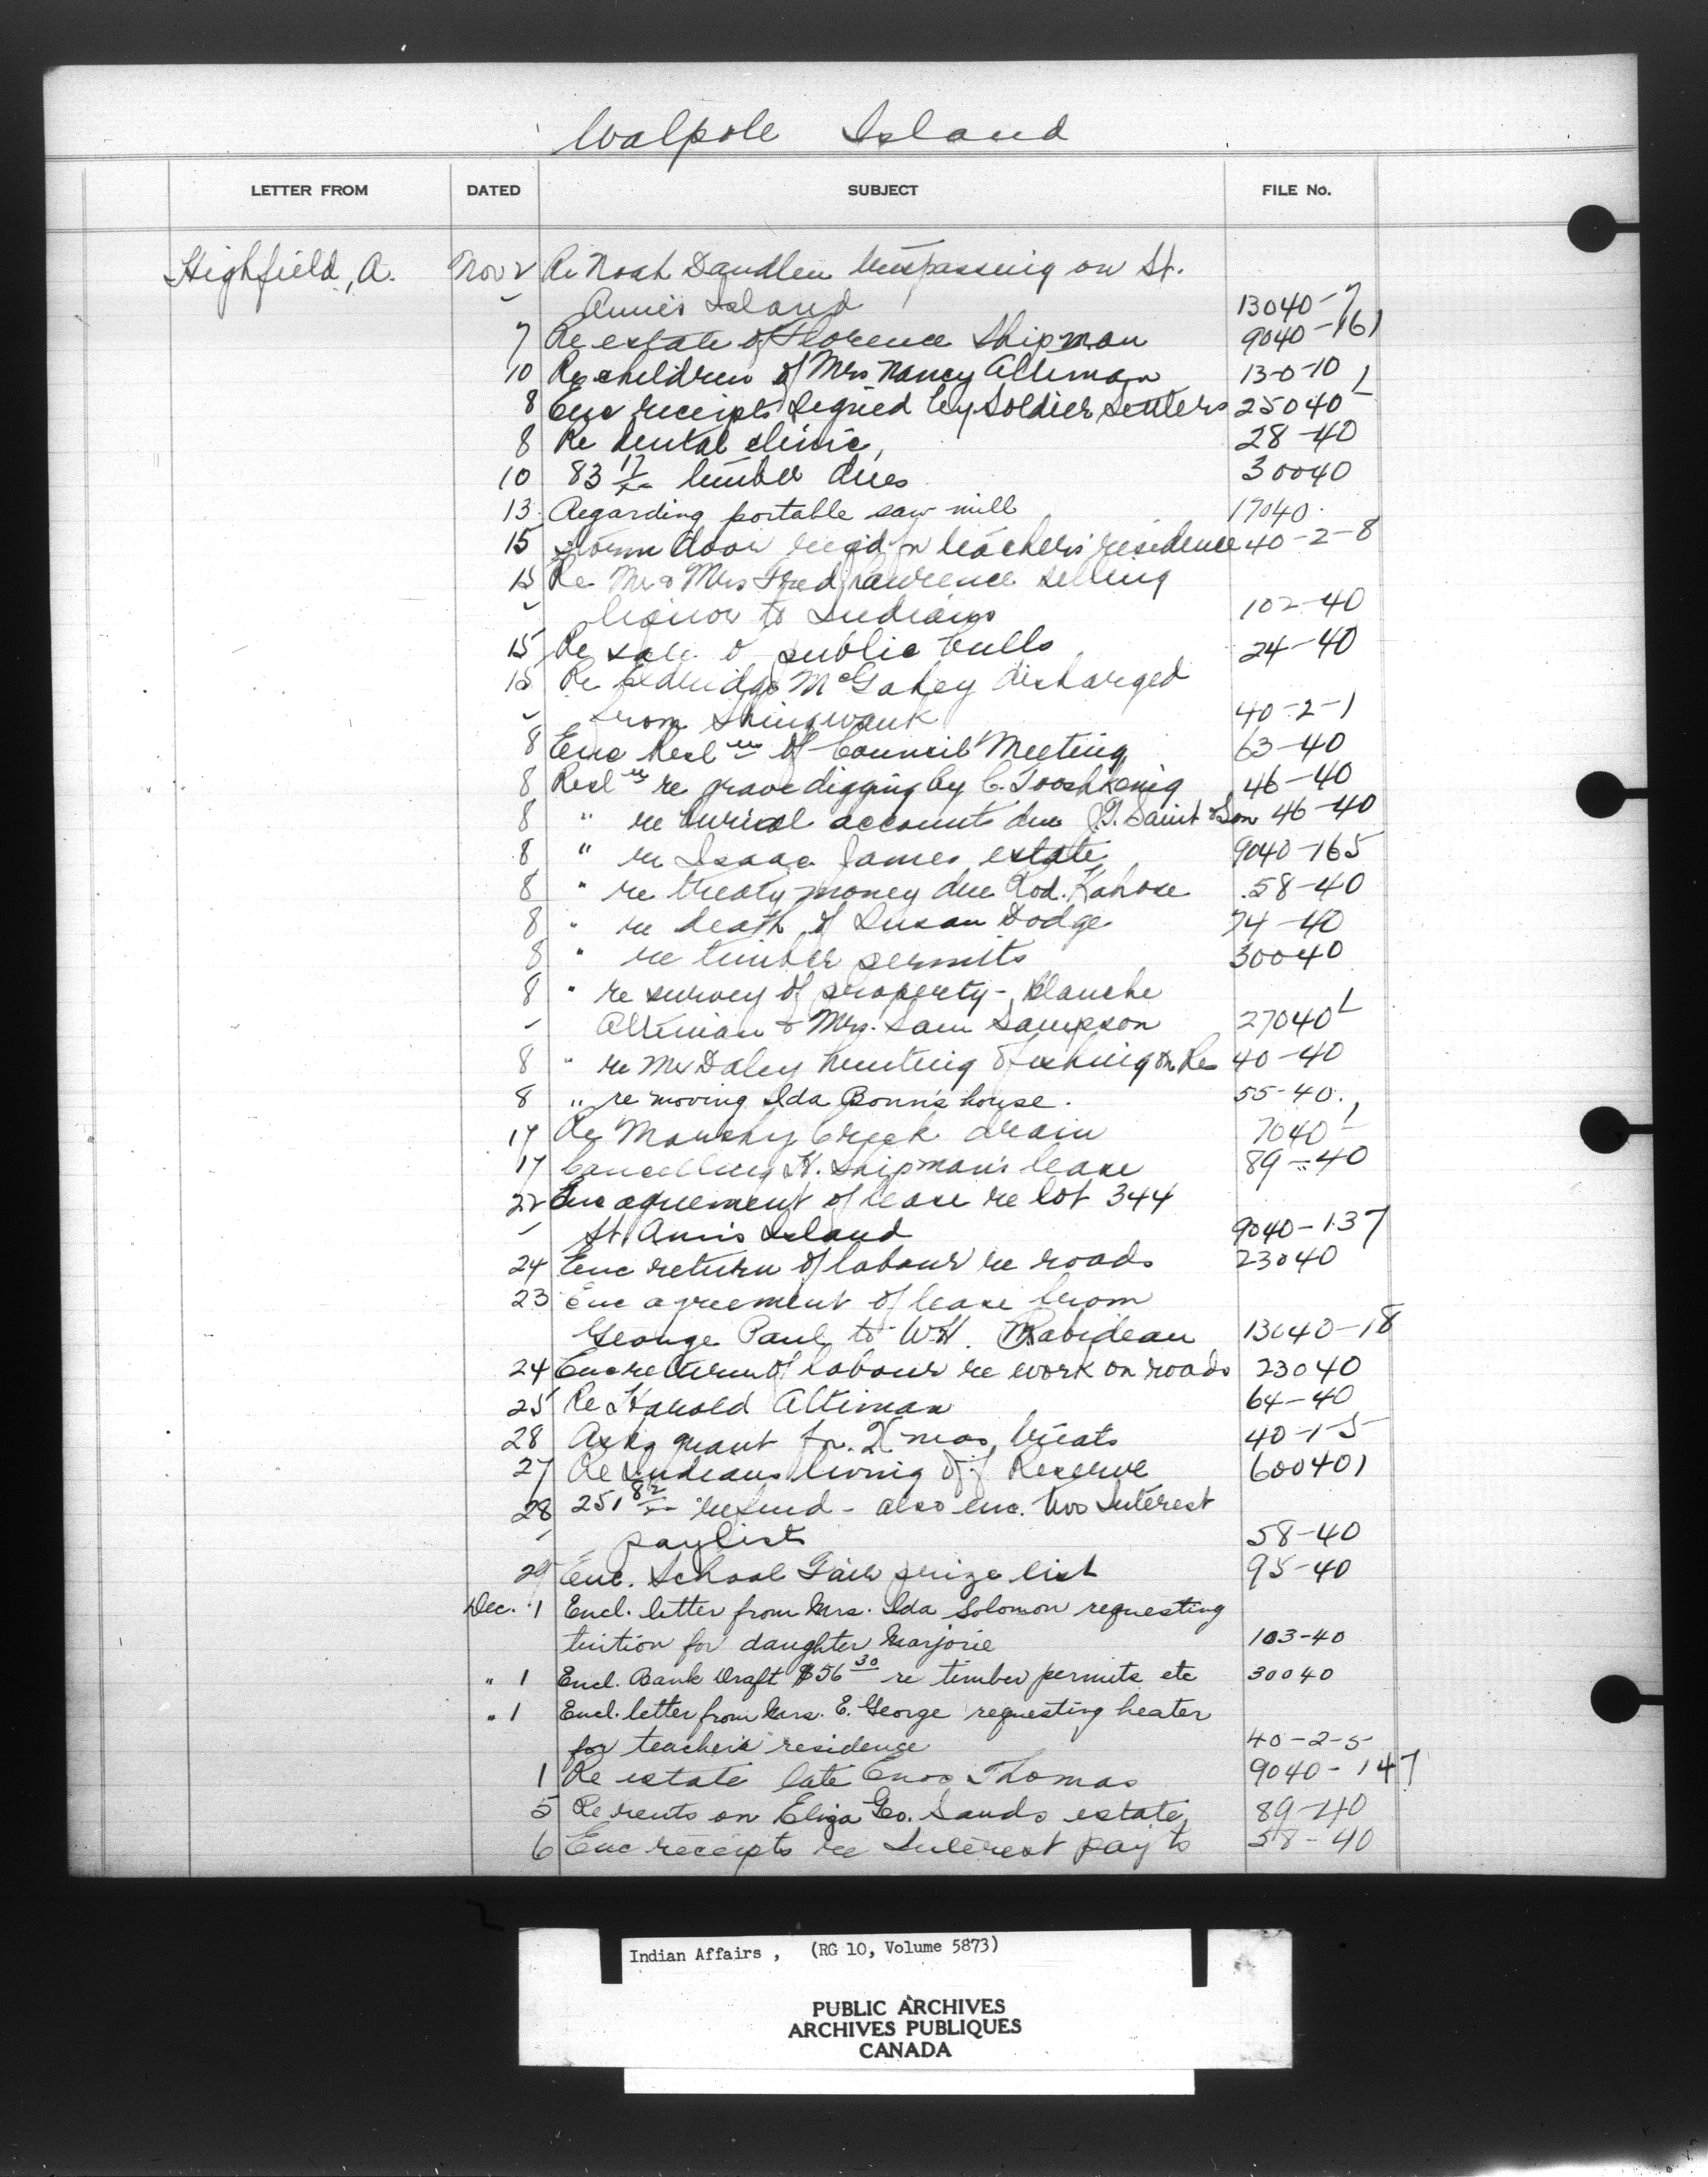 Walpole Island
LETTER FROM DATED SUBJECT FILE No.
Highfield, A. Nov 2 Re Noah Dandlen trespassing on St.
Anne's Island 13040-7
7 Re estate of Florence Shipman 9040-161
10 Re children of Mrs Nancy Altiman 13-0-10
8 Enc receipts signed by Soldier Settlers 25040-1
8 Re dental clinic, 28-40
10 83 17/xx timber dues 30040
13 Regarding portable saw mill 17040
15 Storm door req'd for teachers' residence 40-2-8
15 Re Mr & Mrs Fred Lawrence selling
liquor to Indians 102-40
15 Re sale of public bulls 24-40
15 Re Eldridge McGahey discharged
from Shingwauk 40-2-1
8 Enc Resl ns of Council Meeting 63-40
8 Resl ns re grave digging by C. Tooshkenig 46-40
8 " re burial accounts due J.G. Saint & Son 46-40
8 " re Isaac James estate 9040-165
8 " re treaty money due Rod. Kahose 58-40
8 " re death of Susan Dodge 74-40
8 " re timber permits 30040
8 " re survey of property - Blanche
Altiman & Mrs. Sam Sampson 27040-1
8 " re Mr Daley hunting & fishing on Res 40-40
8 " re moving Ida Bonn's house. 55-40.
17 Re Creek drain 7040-1
17 Cancelling H. Shipman's lease 89-40
22 Enc agreement of lease re lot 344
St. Ann's Island 9040-137
24 Enc return of labour re roads 23040
23 Enc agreement of lease from
George Paul to W.H. Rabideau 13040-18
24 Enc return of labour re work on roads 23040
25 Re Harold Altiman 64-40
28 Asks grant for Xmas treats 40-1-5
27 Re Indians living off Reserve 600401
28 251 82/xx refund - also enc. two Interest
paylists 58-40
29 Enc. School Fair prize list 95-40
Dec. 1 Encl. letter from Mrs. Ida Solomon requesting
tuition for daughter Marjorie 103-40
" 1 Encl. Bank Draft $56 30 re timber permits etc 30040
" 1 Encl. letter from Mrs. E. George requesting heater
for teacher's residence 40-2-5
1 Re estate late Enos Thomas 9040-147
5 Re rents on Eliza Geo. Sands estate 89-40
6 Enc receipts re Interest pay ts 58-40
Indian Affairs , (RG 10, Volume 5873)
PUBLIC ARCHIVES
ARCHIVES PUBLIQUES
CANADA